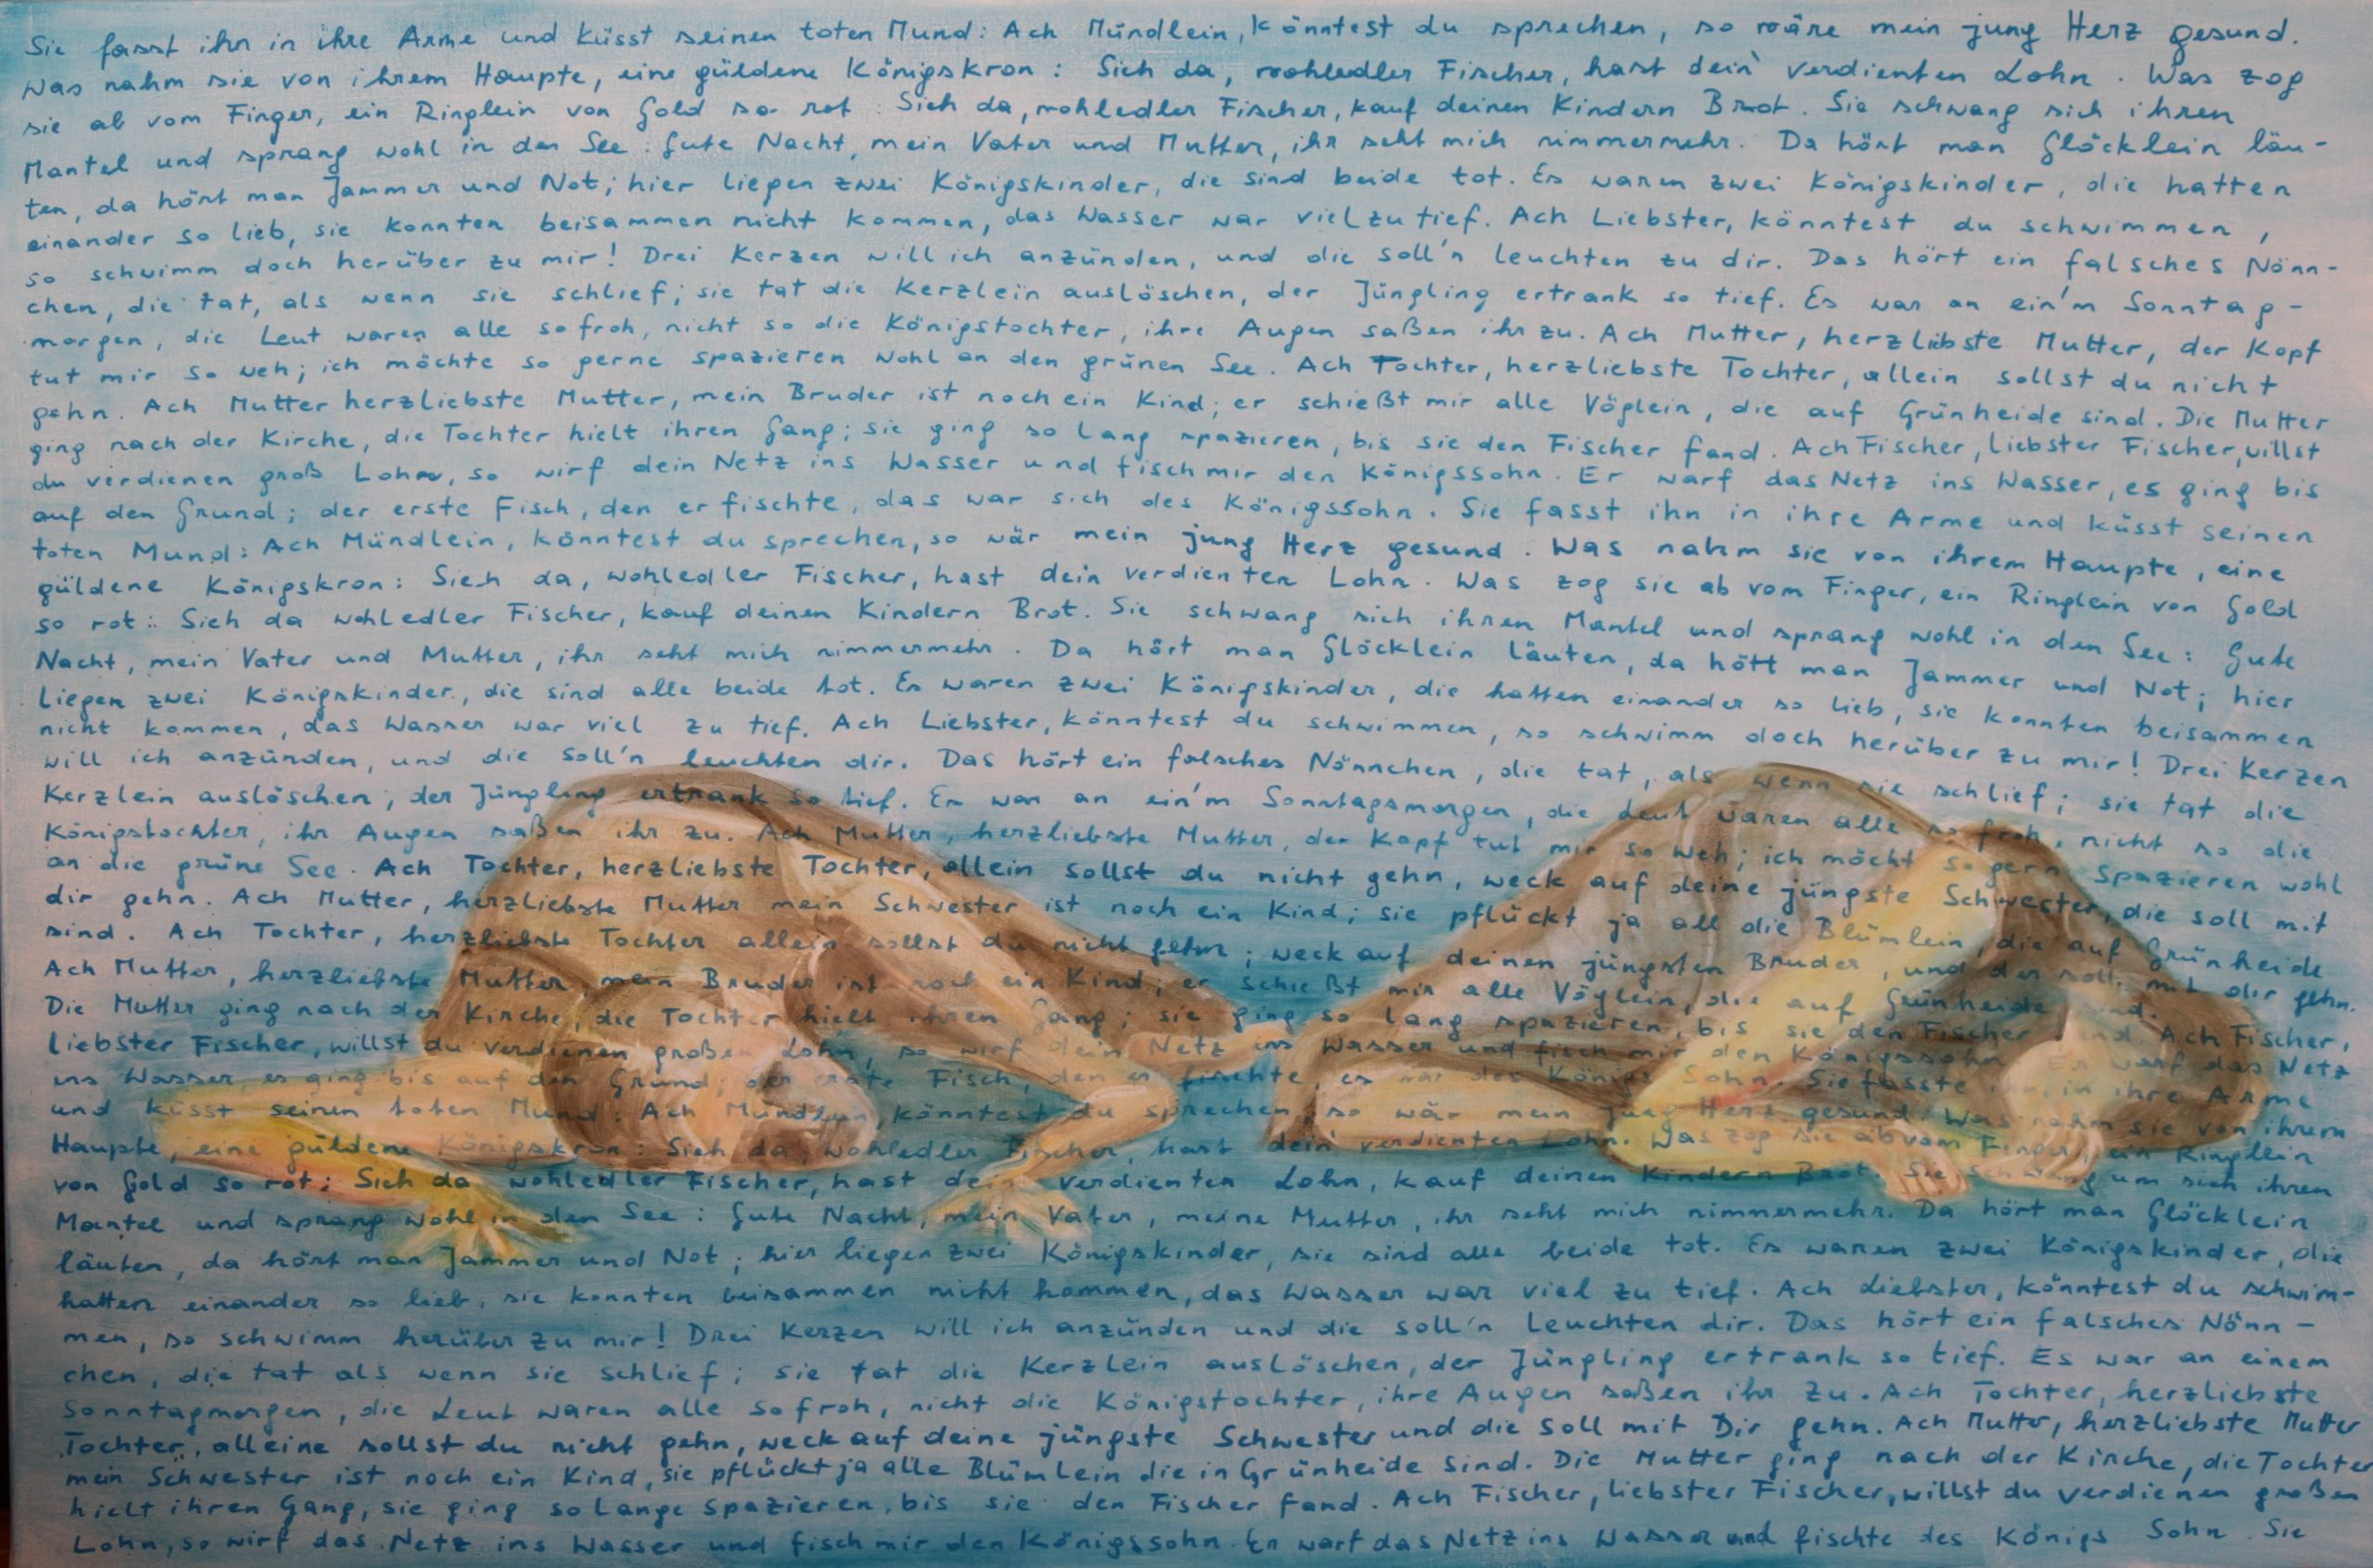 Sie fasst ihn in ihre Arme und küsst seinen toten Mund: Ach Mündlein, könntest du sprechen, so wäre mein jung Herz gesund.
Was nahm sie von ihrem Haupte, eine güldene Königskron: Sieh da, wohledler Fischer, hast dein verdienten Lohn. Was zog
sie ab vom Finger, ein Ringlein von Gold so rot: Sieh da, wohledler Fischer, kauf deinen Kindern Brot. Sie schwang sich ihren
Mantel und sprang wohl in den See: Gute Nacht, mein Vater und Mutter, ihr seht mich nimmermehr. Da hört man Glöcklein läu-
ten, da hört man Jammer und Not; hier liegen zwei Königskinder, die sind beide tot. Es waren zwei Königskinder, die hatten
einander so lieb, sie konnten beisammen nicht kommen, das Wasser war viel zu tief. Ach Liebster, könntest du schwimmen,
so schwimm doch herüber zu mir! Drei Kerzen will ich anzünden, und die soll'n leuchten zu dir. Das hört ein falsches Nönn-
chen, die tat, als wenn sie schlief; sie tat die Kerzlein auslöschen, der Jüngling ertrank so tief. Es war an ein'm Sonntag-
morgen, die Leut waren alle so froh, nicht so die Königstochter, ihre Augen saßen ihr zu. Ach Mutter, herzliebste Mutter, der Kopf
tut mir so weh; ich möchte so gerne spazieren wohl an den grünen See. Ach Tochter, herzliebste Tochter, allein sollst du nicht
gehn. Ach Mutter herzliebste Mutter, mein Bruder ist noch ein Kind; er schießt mir alle Vöglein, die auf Grünheide sind. Die Mutter
ging nach der Kirche, die Tochter hielt ihren Gang; sie ging so lang spazieren, bis sie den Fischer fand. Ach Fischer, liebster Fischer, willst
du verdienen groß Lohn, so wirf dein Netz ins Wasser und fisch mir den Königssohn. Er warf das Netz ins Wasser, es ging bis
auf den Grund; der erste Fisch, den er fischte, das war sich des Königssohn. Sie fasst ihn in ihre Arme und küsst seinen
toten Mund: Ach Mündlein, könntest du sprechen, so wär mein jung Herz gesund. Was nahm sie von ihrem Haupte, eine
güldene Königskron: Sieh da, wohledler Fischer, hast dein verdienten Lohn. Was zog sie ab vom Finger, ein Ringlein von Gold
so rot: Sieh da wohledler Fischer, kauf deinen Kindern Brot. Sie schwang sich ihren Mantel und sprang wohl in den See: Gute
Nacht, mein Vater und Mutter, ihr seht mich nimmermehr. Da hört man Glöcklein läuten, da hött man Jammer und Not; hier
liegen zwei Königskinder, die sind alle beide tot. Es waren zwei Königskinder, die hatten einander so lieb, sie konnten beisammen
nicht kommen, das Wasser war viel zu tief. Ach Liebster, könntest du schwimmen, so schwimm doch herüber zu mir! Drei Kerzen
will ich anzünden, und die soll'n leuchten dir. Das hört ein falsches Nönnchen, die tat, als wenn sie schlief; sie tat die
Kerzlein auslöschen; der Jüngling ertrank so tief. Es war an ein'm Sonntagsmorgen, die Leut waren alle so froh, nicht so die
Königstochter, ihr Augen saßen ihr zu. Ach Mutter, herzliebste Mutter, der Kopf tut mir so weh; ich möcht so gern spazieren wohl
an die grüne See. Ach Tochter, herzliebste Tochter, allein sollst du nicht gehn, weck auf deine jüngste Schwester, die soll mit
dir gehn. Ach Mutter, herzliebste Mutter mein Schwester ist noch ein Kind; sie pflückt ja all die Blümlein, die auf Grünheide
sind. Ach Tochter, herzliebste Tochter allein sollst du nicht gehn; weck auf deinen jüngsten Bruder, und der soll mit dir gehn.
Ach Mutter, herzliebste Mutter mein Bruder ist noch ein Kind; er schießt mir alle Vöglein, die auf Grünheide sind.
Die Mutter ging nach der Kirche, die Tochter hielt ihren Gang; sie ging so lang spazieren, bis sie den Fischer fand. Ach Fischer,
liebster Fischer, willst du verdienen großen Lohn, so wirf dein Netz ins Wasser und fisch mir den Königssohn. Er warf das Netz
ins Wasser, es ging bis auf den Grund; der erste Fisch, den er fischte, es war des Königs Sohn. Sie fasste ihn in ihre Arme
und küsst seinen toten Mund: Ach Mündlein, könntest du sprechen, so wär mein jung Herz gesund. Was nahm sie von ihrem
Haupte, eine güldene Königskron: Sieh da, wohledler Fischer, hast dein verdienten Lohn. Was zog sie ab vom Finger, ein Ringlein
von Gold so rot: Sieh da wohledler Fischer, hast dein verdienten Lohn, kauf deinen Kindern Brot. Sie schwang um sich ihren
Mantel und sprang wohl in den See: Gute Nacht, mein Vater, meine Mutter, ihr seht mich nimmermehr. Da hört man Glöcklein
läuten, da hört man Jammer und Not; hier liegen zwei Königskinder, sie sind alle beide tot. Es waren zwei Königskinder, die
hatten einander so lieb, sie konnten beisammen nicht kommen, das Wasser war viel zu tief. Ach Liebster, könntest du schwim-
men, so schwimm herüber zu mir! Drei Kerzen will ich anzünden und die soll'n leuchten dir. Das hört ein falsches Nönn-
chen, die tat als wenn sie schlief; sie tat die Kerzlein auslöschen, der Jüngling ertrank so tief. Es war an einem
Sonntagmorgen, die Leut waren alle so froh, nicht die Königstochter, ihre Augen saßen ihr zu. Ach Tochter, herzliebste
Tochter, alleine sollst du nicht gehn, weck auf deine jüngste Schwester und die soll mit Dir gehn. Ach Mutter, herzliebste Mutter
mein Schwester ist noch ein Kind, sie pflückt ja alle Blümlein die in Grünheide sind. Die Mutter ging nach der Kirche, die Tochter
hielt ihren Gang, sie ging so lange spazieren, bis sie den Fischer fand. Ach Fischer, liebster Fischer, willst du verdienen großen
Lohn, so wirf das Netz ins Wasser und fisch mir den Königssohn. Er warf das Netz ins Wasser und fischte des Königs Sohn. Sie